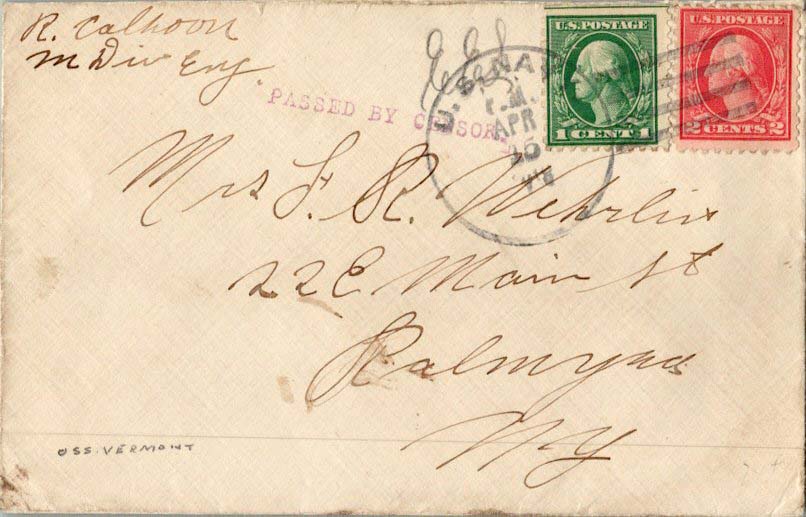 R. Calhoun
M Div Eng.
PASSED BY CENSOR
U.S. NA
APR
U.S. POSTAGE
1 CENT 1
U.S. POSTAGE
2 CENTS 2
Mrs F. R. Wehrlin
22 E Main St
Palmyra
NY
USS. VERMONT